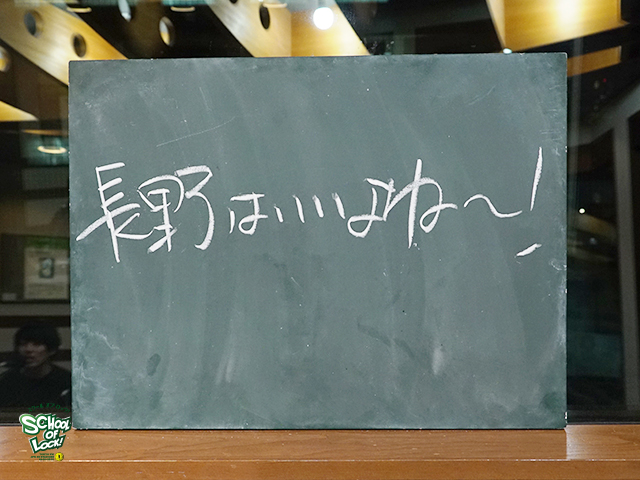 長野はいいよね〜!
SCHOOL
OF
LOCK!